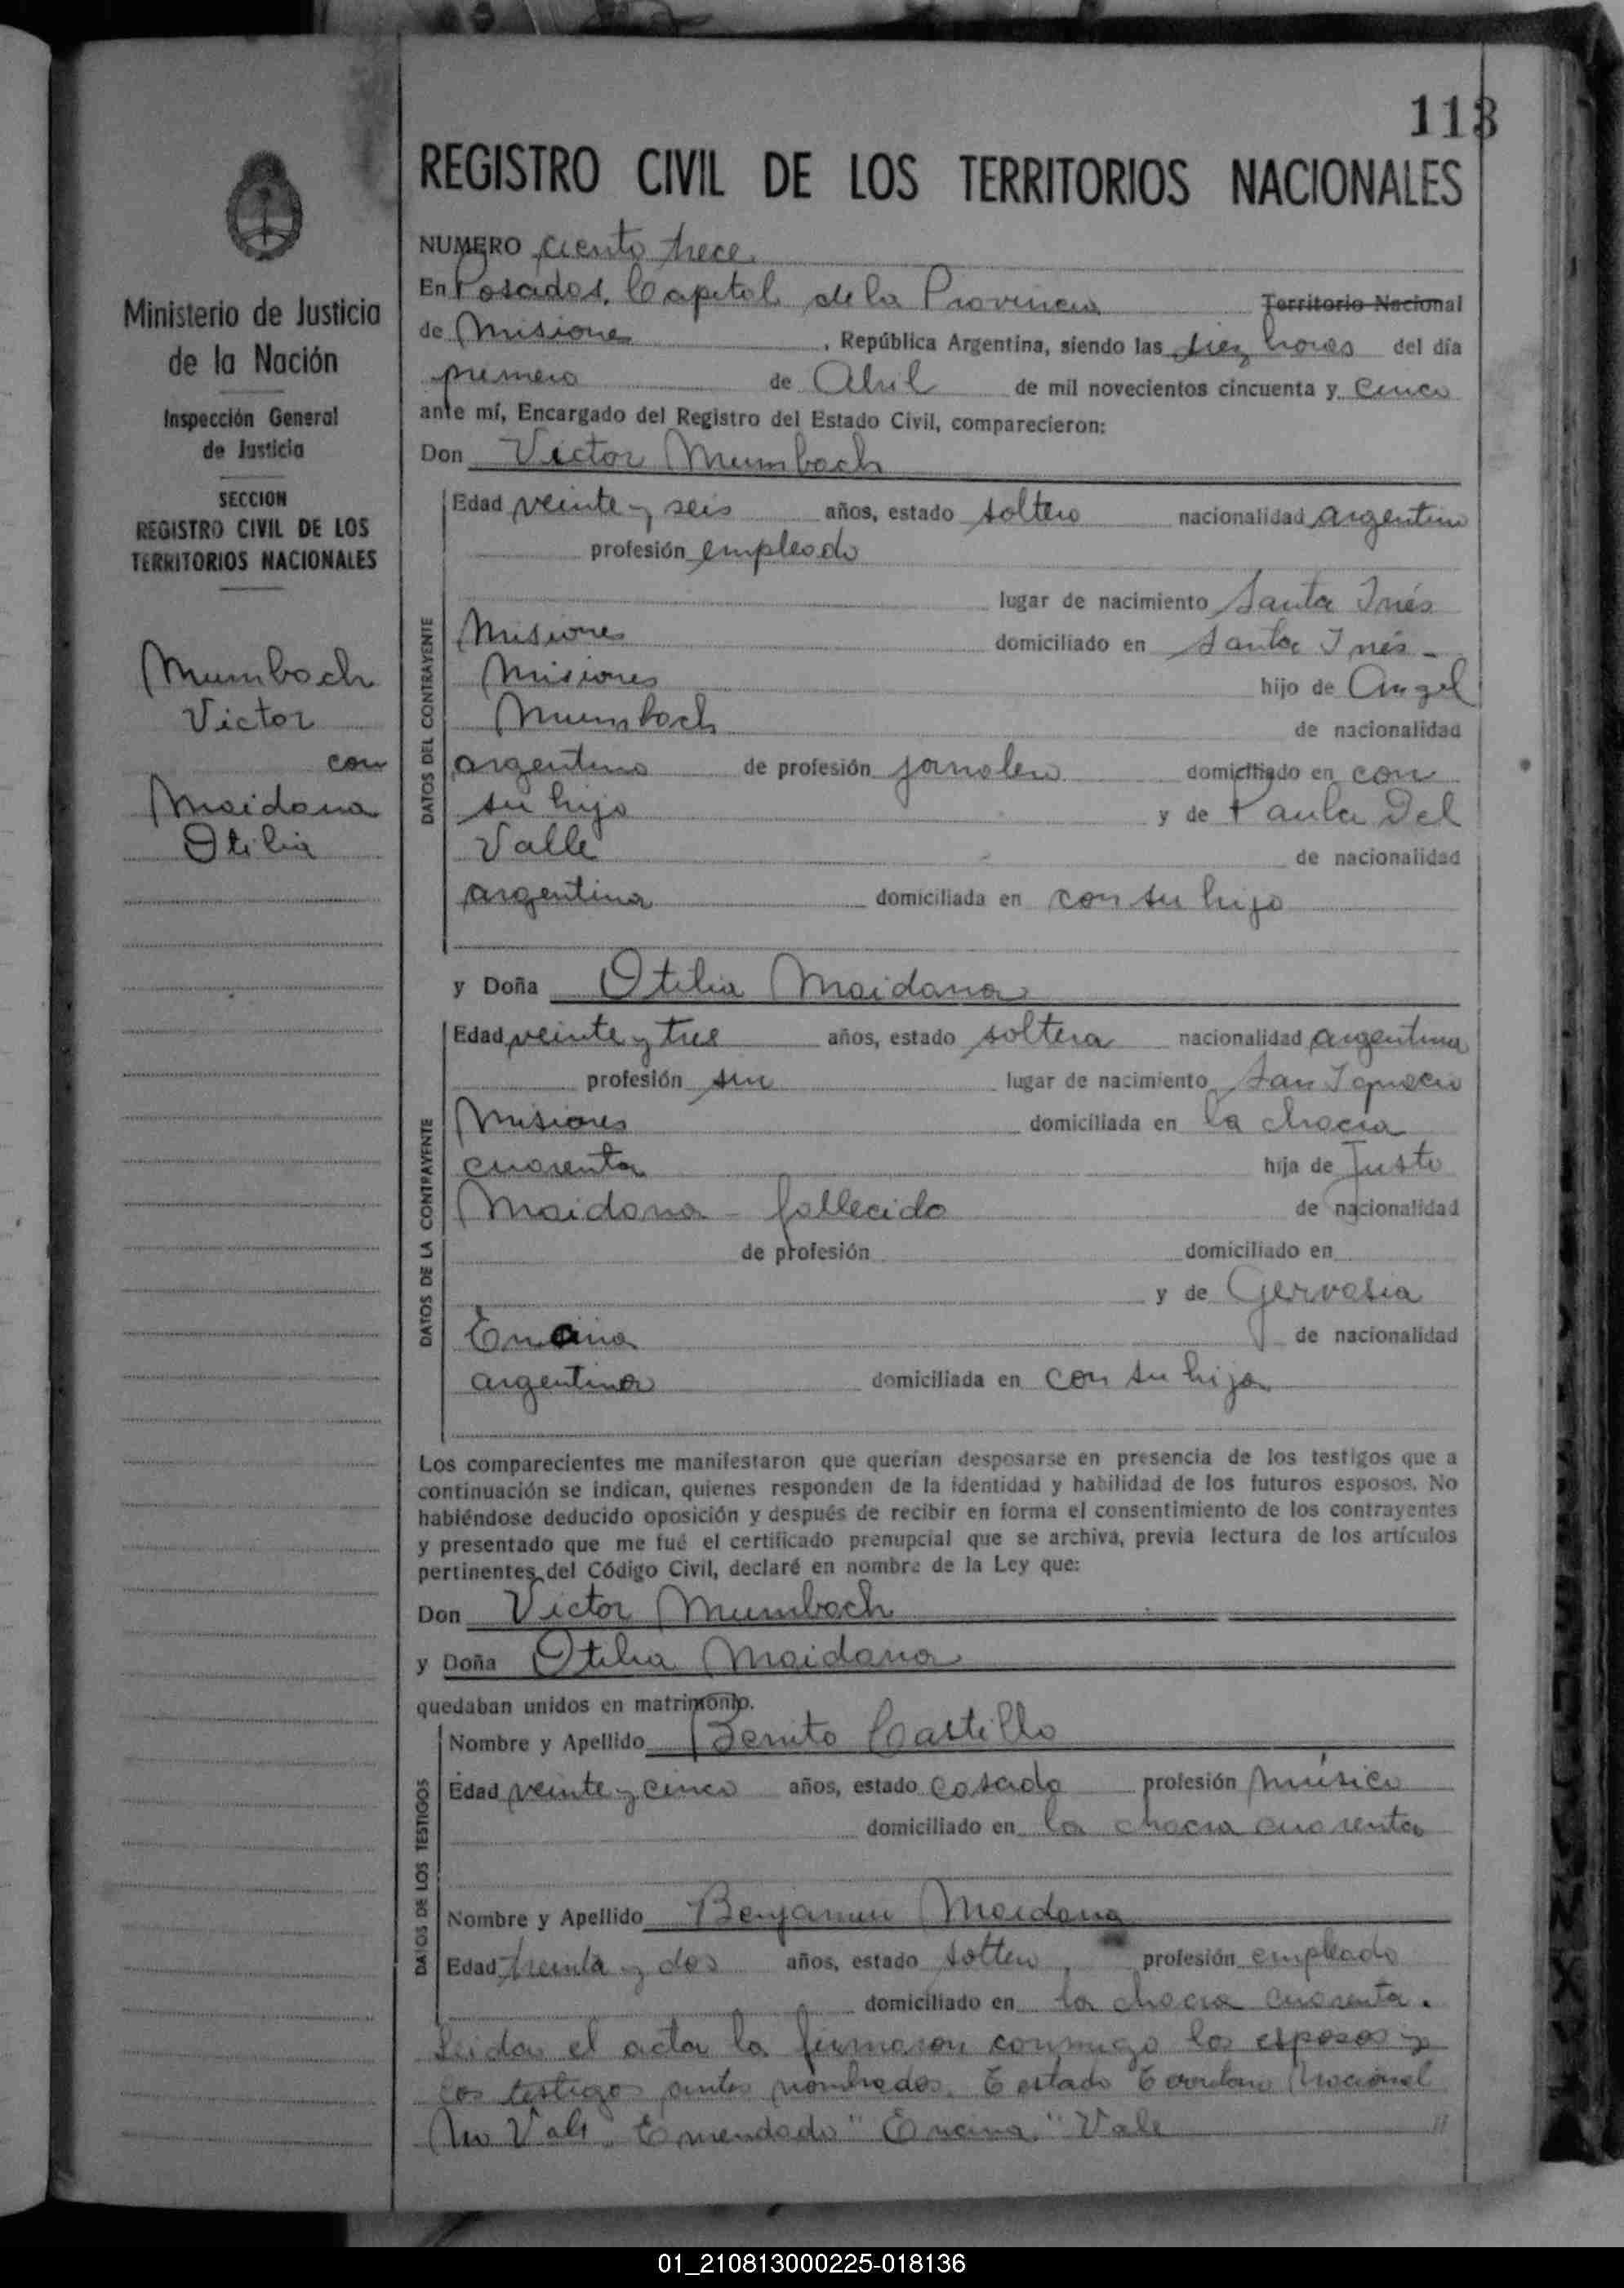 113
REGISTRO CIVIL DE LOS TERRITORIOS NACIONALES
Ministerio de Justicia
de la Nación
Inspección General
de Justicia
SECCION
REGISTRO CIVIL DE LOS
TERRITORIOS NACIONALES
Mumbach
Victor
con
Maidana
Otilia
NUMERO ciento trece
En Posadas, Capital de la Provincia Territorio Nacional
de Misiones, República Argentina, siendo las diez horas del día
primero de Abril de mil novecientos cincuenta y cinco
ante mí, Encargado del Registro del Estado Civil, comparecieron:
Don Victor Mumbach
DATOS DEL CONTRAYENTE
Edad veinte y seis años, estado soltero nacionalidad argentino
profesión empleado
lugar de nacimiento Santa Inés
Misiones domiciliado en Santa Inés -
Misiones hijo de Angel
Mumbach de nacionalidad
argentino de profesión jornalero domiciliado en con
su hijo y de Paula Del
Valle de nacionalidad
argentina domiciliada en con su hijo
y Doña Otilia Maidana
DATOS DE LA CONTRAYENTE
Edad veinte y tres años, estado soltera nacionalidad argentina
profesión sin lugar de nacimiento San Ignacio
Misiones domiciliada en la chacra
cuarenta hija de Justo
Maidana - fallecido de nacionalidad
de profesión domiciliado en
y de Gervasia
Encina de nacionalidad
argentina domiciliada en con su hija
Los comparecientes me manifestaron que querían desposarse en presencia de los testigos que a
continuación se indican, quienes responden de la identidad y habilidad de los futuros esposos. No
habiéndose deducido oposición y después de recibir en forma el consentimiento de los contrayentes
y presentado que me fué el certificado prenupcial que se archiva, previa lectura de los artículos
pertinentes del Código Civil, declaré en nombre de la Ley que:
Don Victor Mumbach
y Doña Otilia Maidana
quedaban unidos en matrimonio.
DATOS DE LOS TESTIGOS
Nombre y Apellido Benito Castillo
Edad veinte y cinco años, estado casado profesión músico
domiciliado en la chacra cuarenta
Nombre y Apellido Benjamin Maidana
Edad treinta y dos años, estado soltero profesión empleado
domiciliado en la chacra cuarenta.
Leida el acta la firmaron conmigo los esposos y
los testigos antes nombrados. Testado Territorio Nacional
No Vale. Enmendado "Encina" Vale "
01_210813000225-018136